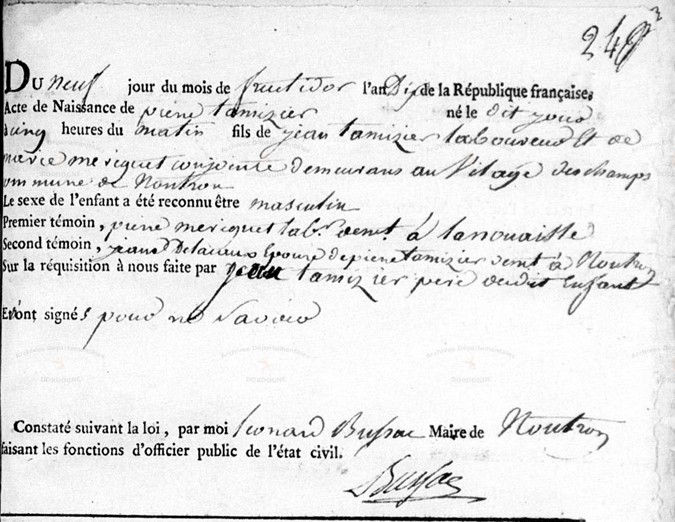 249 2
DU neuf jour du mois de fructidor l'an Dix de la République française,
Acte de Naissance de pierre tamizier né le dit jour
sinq heures du matin fils de jean tamizier laboureur Et de
marie meriguet conjointe demeurans au Vilage deschamps
ommune de Nontron
Le sexe de l'enfant a été reconnu être masculin
Premier témoin, pierre meriguet lab.r dem.t à lanouaille
Second témoin, Epouze de pierre tamizier dem.t à Nontron
Sur la réquisition à nous faite par jean tamizier père dudit Enfant
Et n'ont signés pour ne savoir
Archives Départementales DORDOGNE
Constaté suivant la loi, par moi Leonard Bussac Maire de Nontron
faisant les fonctions d'officier public de l'état civil.
Bussac